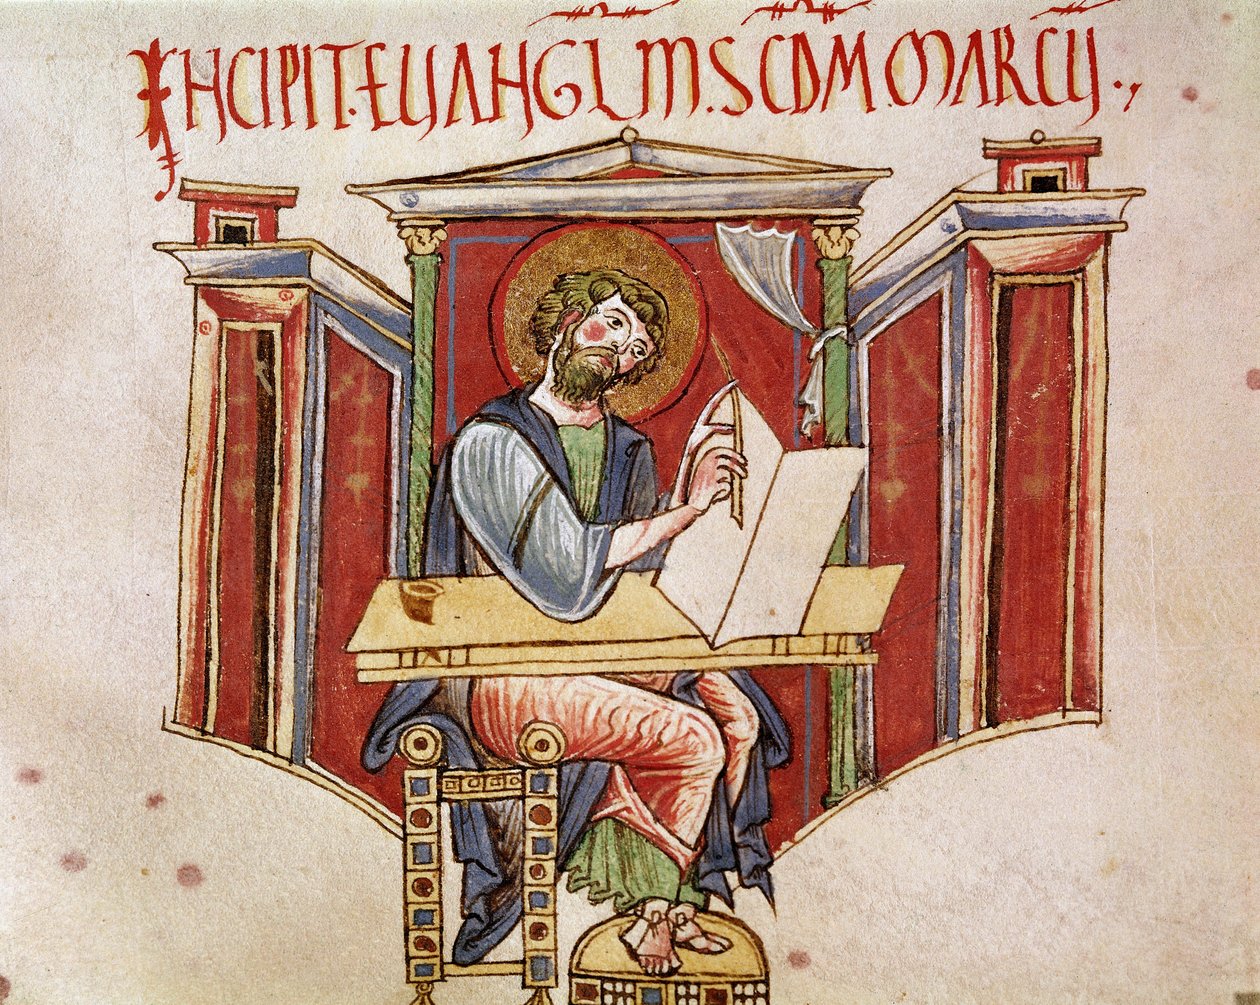 INCIPIT. EUANGLM. SCDM. MARCU.,